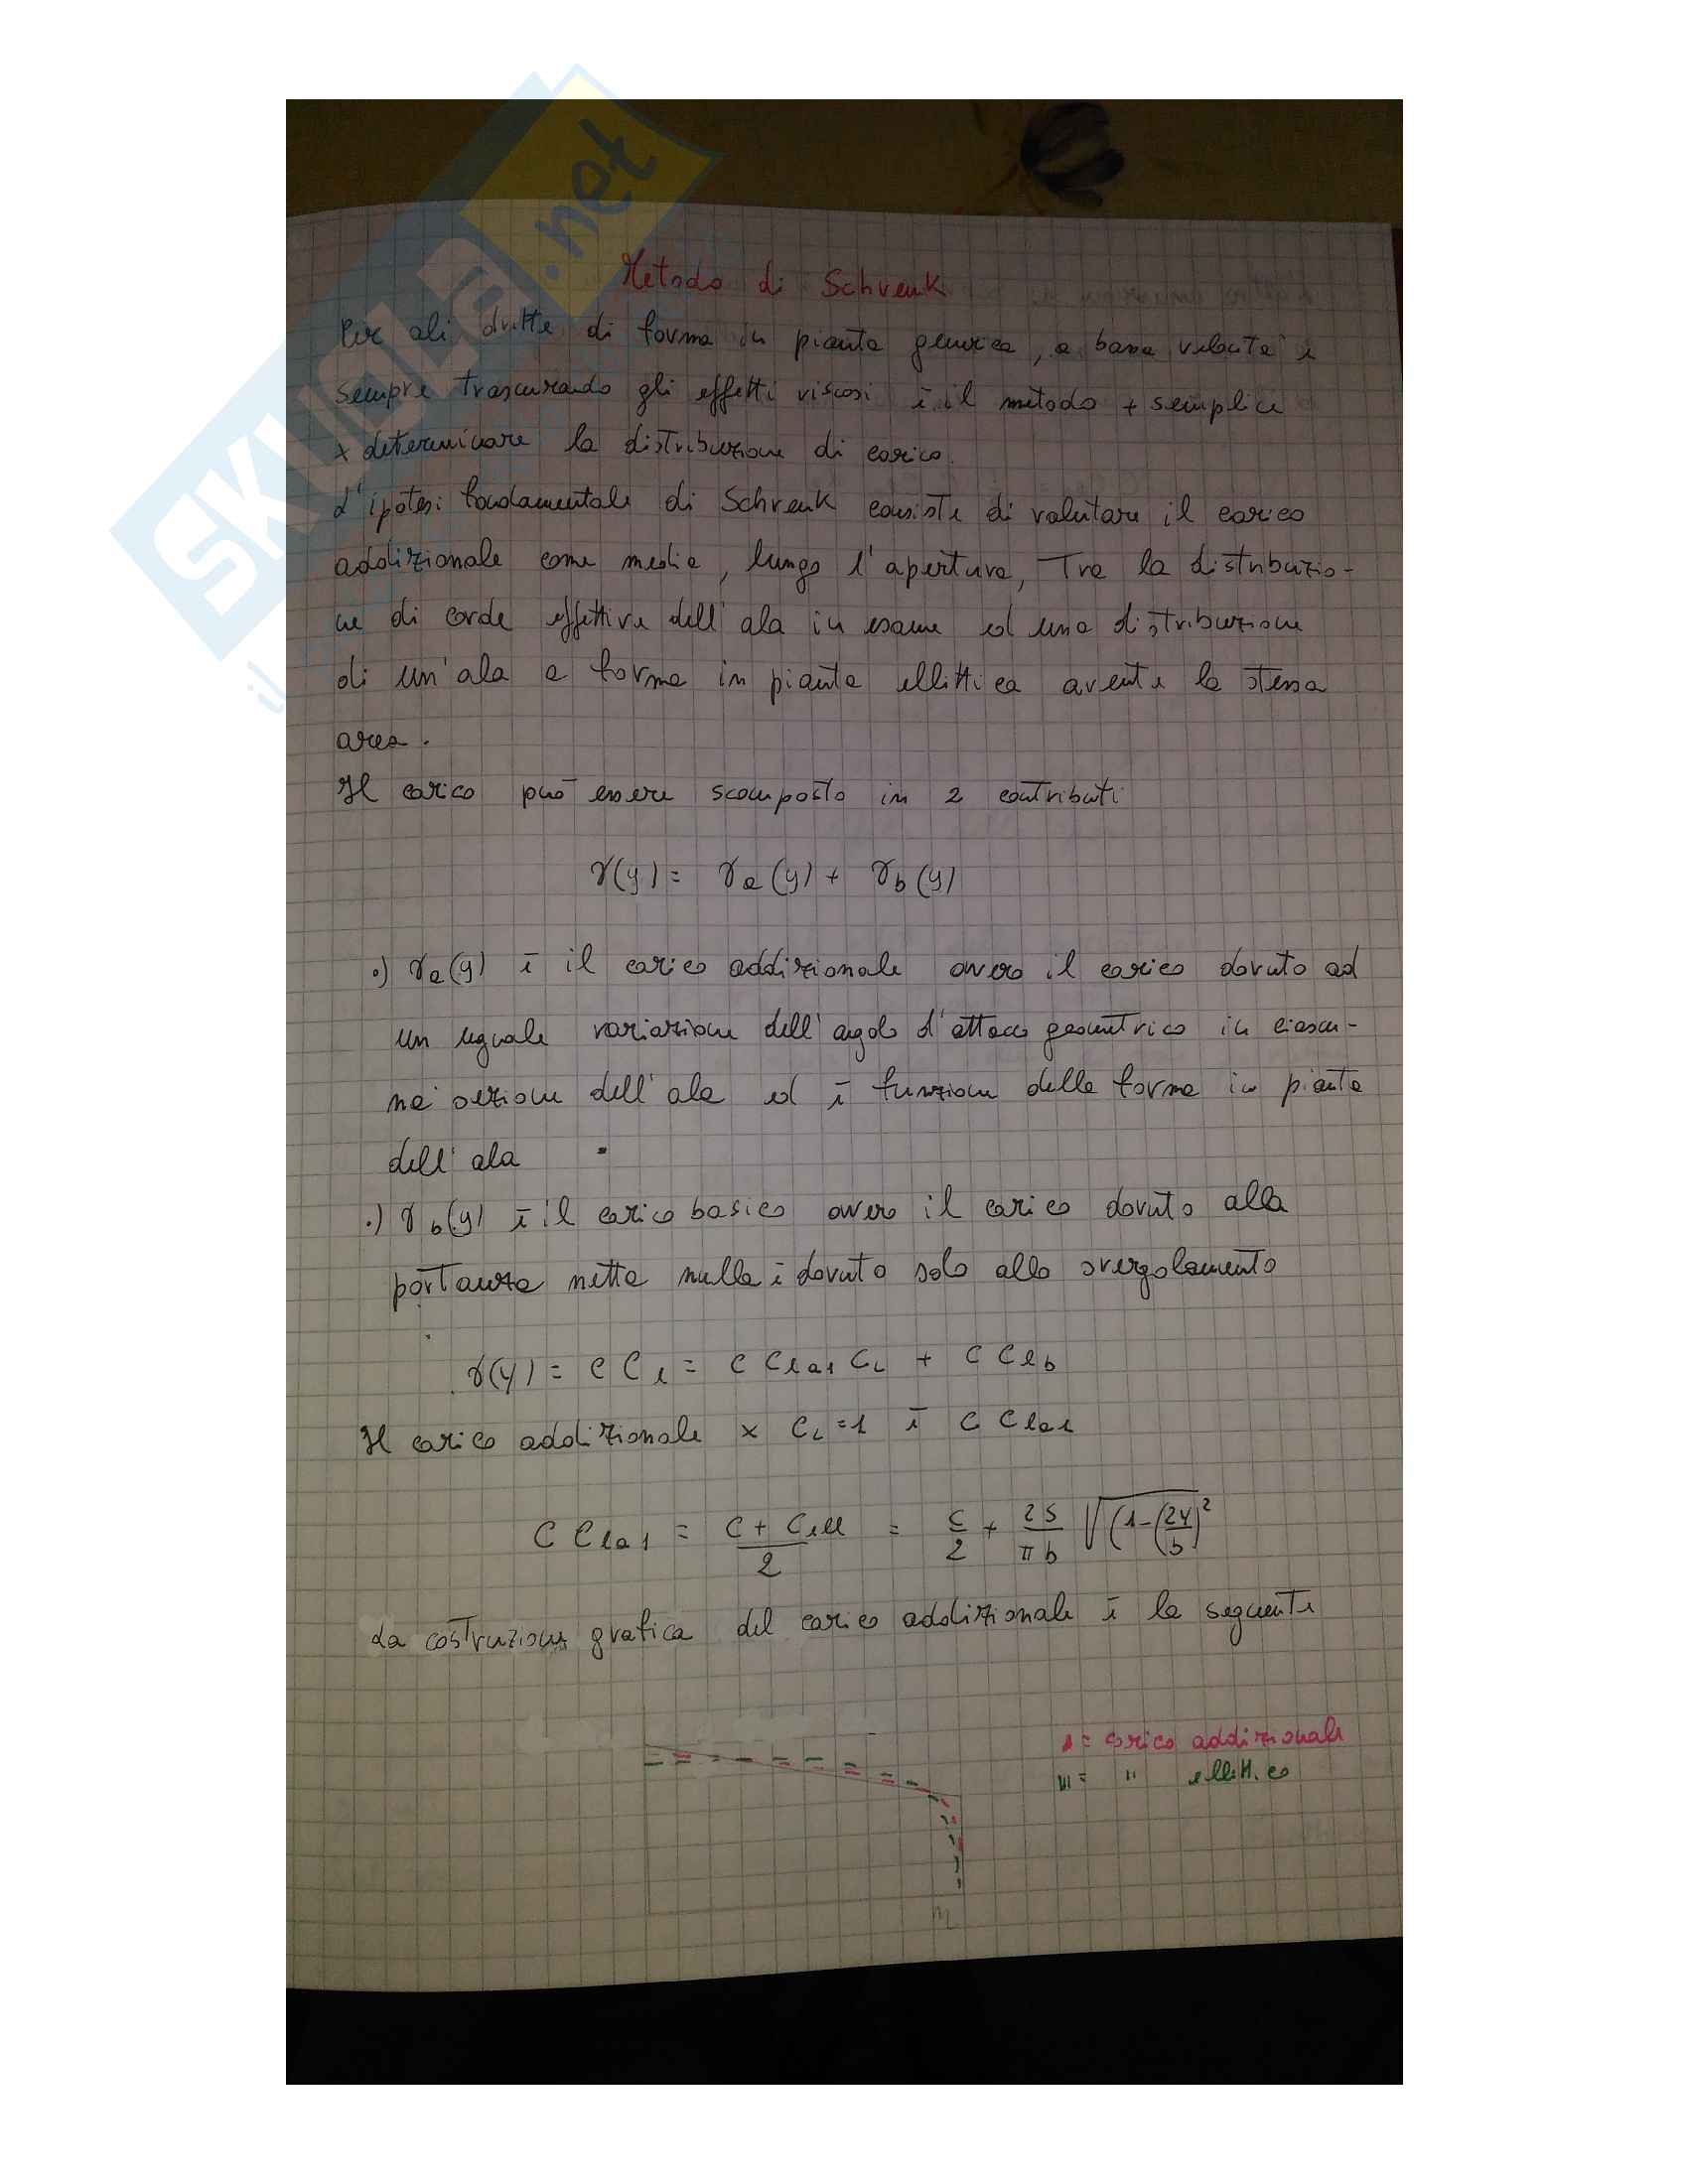 SKUOLA.net
il
Metodo di Schrenk
Per ali dritte di forma in pianta generica, a bassa velocità e
sempre trascurando gli effetti viscosi è il metodo + semplice
x determinare la distribuzione di carico.
L'ipotesi fondamentale di Schrenk consiste di valutare il carico
addizionale come media, lungo l'apertura, Tra la distribuzio-
ne di corde effettive dell'ala in esame ed una distribuzione
di un'ala a forma in pianta ellittica avente la stessa
area.
Il carico può essere scomposto in 2 contributi
γ(y) = γa(y) + γb(y)
•) γa(y) è il carico addizionale ovvero il carico dovuto ad
un uguale variazione dell'angolo d'attacco geometrico in ciascu-
na sezione dell'ala ed è funzione della forma in pianta
dell'ala
•) γb(y) è il carico basico ovvero il carico dovuto alla
portanza netta nulla è dovuto solo allo svergolamento
γ(y) = c Cl = c Cla1 CL + c Clb
Il carico addizionale x CL=1 è c Cla1
c Cla1 = (c + cell)/2 = c/2 + 2S/πb √(1-(2y/b)²
La costruzione grafica del carico addizionale è la seguente
= carico addizionale
= " ellittico